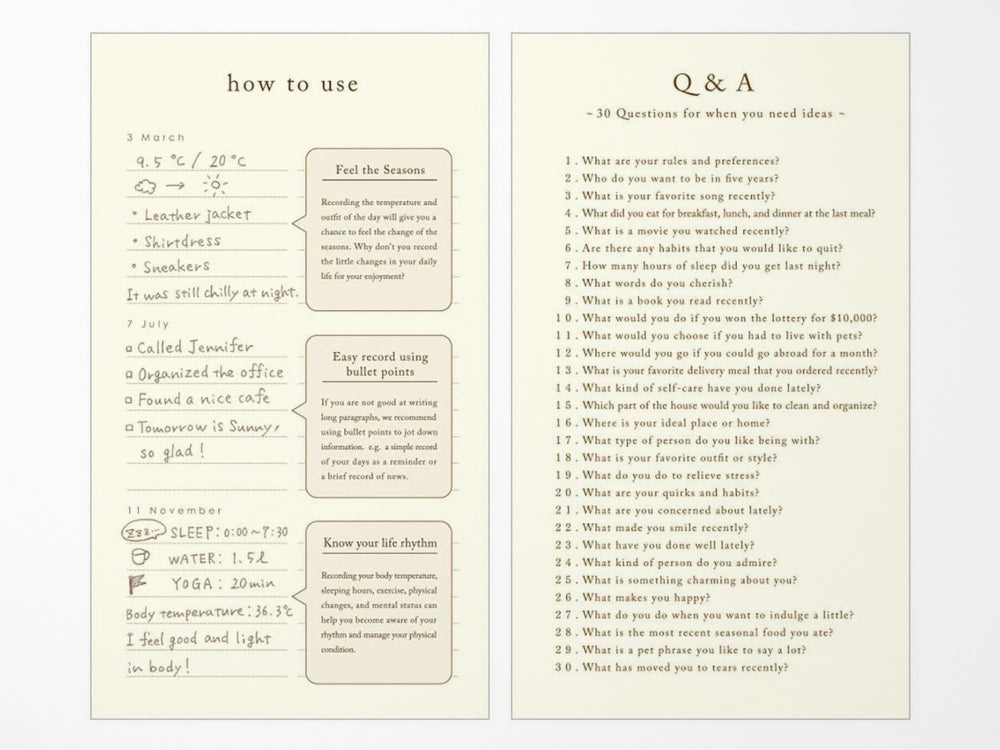 how to use
3 March
9.5 °C / 20 °C
• Leather jacket
• Shirtdress
• Sneakers
It was still chilly at night.
Feel the Seasons
Recording the temperature and
outfit of the day will give you a
chance to feel the change of the
seasons. Why don't you record
the little changes in your daily
life for your enjoyment?
7 July
□ Called Jennifer
□ Organized the office
□ Found a nice cafe
□ Tomorrow is Sunny,
so glad !
Easy record using
bullet points
If you are not good at writing
long paragraphs, we recommend
using bullet points to jot down
information. e.g. a simple record
of your days as a reminder or
a brief record of news.
11 November
zzz SLEEP : 0:00 ~ 7:30
WATER : 1.5ℓ
YOGA : 20min
Body temperature : 36.3℃
I feel good and light
in body !
Know your life rhythm
Recording your body temperature,
sleeping hours, exercise, physical
changes, and mental status can
help you become aware of your
rhythm and manage your physical
condition.
Q & A
~ 30 Questions for when you need ideas ~
1. What are your rules and preferences?
2. Who do you want to be in five years?
3. What is your favorite song recently?
4. What did you eat for breakfast, lunch, and dinner at the last meal?
5. What is a movie you watched recently?
6. Are there any habits that you would like to quit?
7. How many hours of sleep did you get last night?
8. What words do you cherish?
9. What is a book you read recently?
10. What would you do if you won the lottery for $10,000?
11. What would you choose if you had to live with pets?
12. Where would you go if you could go abroad for a month?
13. What is your favorite delivery meal that you ordered recently?
14. What kind of self-care have you done lately?
15. Which part of the house would you like to clean and organize?
16. Where is your ideal place or home?
17. What type of person do you like being with?
18. What is your favorite outfit or style?
19. What do you do to relieve stress?
20. What are your quirks and habits?
21. What are you concerned about lately?
22. What made you smile recently?
23. What have you done well lately?
24. What kind of person do you admire?
25. What is something charming about you?
26. What makes you happy?
27. What do you do when you want to indulge a little?
28. What is the most recent seasonal food you ate?
29. What is a pet phrase you like to say a lot?
30. What has moved you to tears recently?